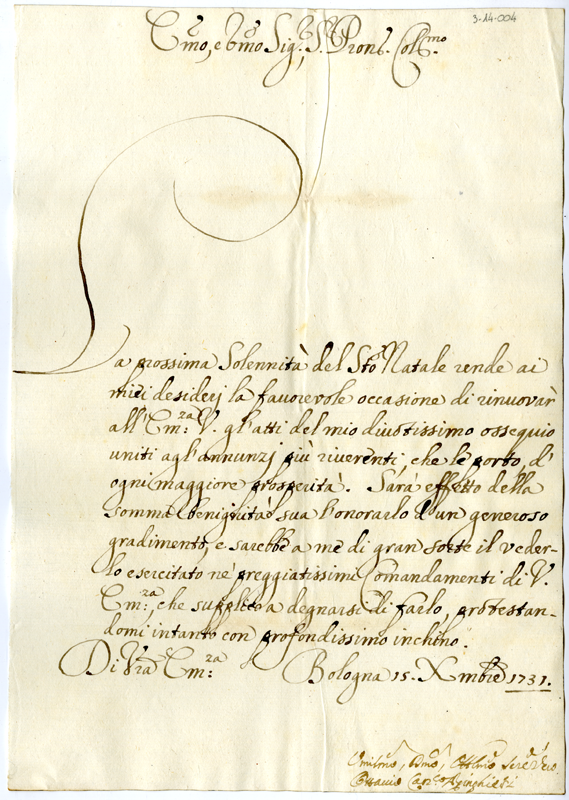 3-14-004
Emo, e Rmo Sig.r, S. Prone. Colmo
La prossima Solennità del Sto Natale rende ai
miei desiderj la favorevole occasione di rinuovar
all'Em:za V. gl'atti del mio divotissimo ossequio
uniti agl'annunzj più riverenti, che le porto, d'
ogni maggiore prosperità. Sarà effetto della
somma benignità sua l'onorarlo d'un generoso
gradimento, e sarebbe a me di gran sorte il veder-
lo esercitato ne' preggiatissimi Comandamenti di V.
Em:za, che supplico a degnarsi di farlo, protestan-
domi intanto con profondissimo inchino.
Di Vra Em:za Bologna 15. Xmbre 1731.
Umilmo, Dmo, Obblmo Serre Vero
Ottavio